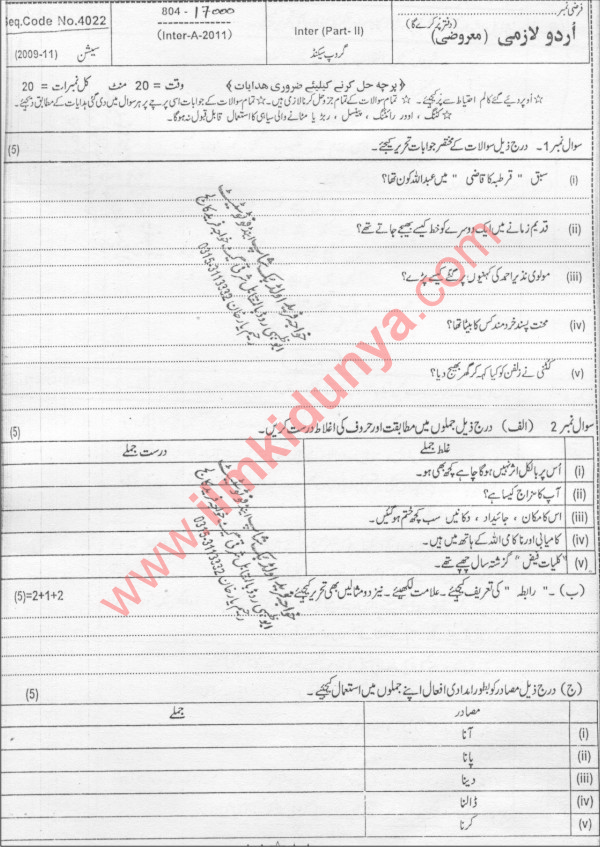 Seq.Code No.4022
(2009-11) سیشن
804 - 17000
(Inter-A-2011)
Inter (Part- II)
گروپ سیکنڈ
فرضی نمبر
(دفتر پر کرے گا)
اُردو لازمی (معروضی)
وقت = 20 منٹ کل نمبرات = 20
پرچہ حل کرنے کیلیئے ضروری ہدایات
☆ اُوپر دئیے گئے کالم احتیاط سے پُر کیجئے۔ ☆ تمام سوالات کے تمام جزو حل کرنا لازمی ہیں۔ ☆ تمام سوالات کے جوابات اسی پرچے پر ہر سوال میں دی گئی ہدایات کے مطابق دیجئے۔
☆ کٹنگ ، اوور رائٹنگ ، پینسل ، ربڑ یا مٹانے والی سیاہی کا استعمال قابل قبول نہ ہوگا۔
سوال نمبر 1- درج ذیل سوالات کے مختصر جوابات تحریر کیجئے۔ (5)
(i) سبق " قرطبہ کا قاضی " میں عبداللہ کون تھا؟
(ii) قدیم زمانے میں ایک دوسرے کو خط کیسے بھیجے جاتے تھے؟
(iii) مولوی نذیر احمد کی کہنیوں پر گٹے کیسے پڑے؟
(iv) محنت پسند خرد مند کس کا بیٹا تھا؟
(v) نے زلفن کو کیا کہہ کر گھر بھیج دیا؟
سوال نمبر 2 (الف) درج ذیل جملوں میں مطابقت اور حروف کی اغلاط درست کریں۔ (5)
غلط جملے درست جملے
(i) اُس پر بالکل اثر نہیں ہوگا چاہے کچھ بھی ہو۔
(ii) آپ کا مزاج کیسا ہے؟
(iii) اس کا مکان ، جائیداد ، دکانیں سب کچھ ختم ہو گئیں۔
(iv) کامیابی اور ناکامی اللہ کے ہاتھ میں ہیں۔
(v) "کلیات فیض" گزشتہ سال چھپے تھے۔
(ب) ۔ " رابطہ " کی تعریف کیجیئے۔ علامت لکھیئے۔ نیز دو مثالیں بھی تحریر کیجیئے (5)=2+1+2
(ج) درج ذیل مصادر کو بطور امدادی افعال اپنے جملوں میں استعمال کیجیئے۔ (5)
مصادر جملے
(i) آنا
(ii) پانا
(iii) دینا
(iv) ڈالنا
(v) کرنا
0315-3113332
رحیم یار خان
0315-3113332
رحیم یار خان
www.ilmkidunya.com